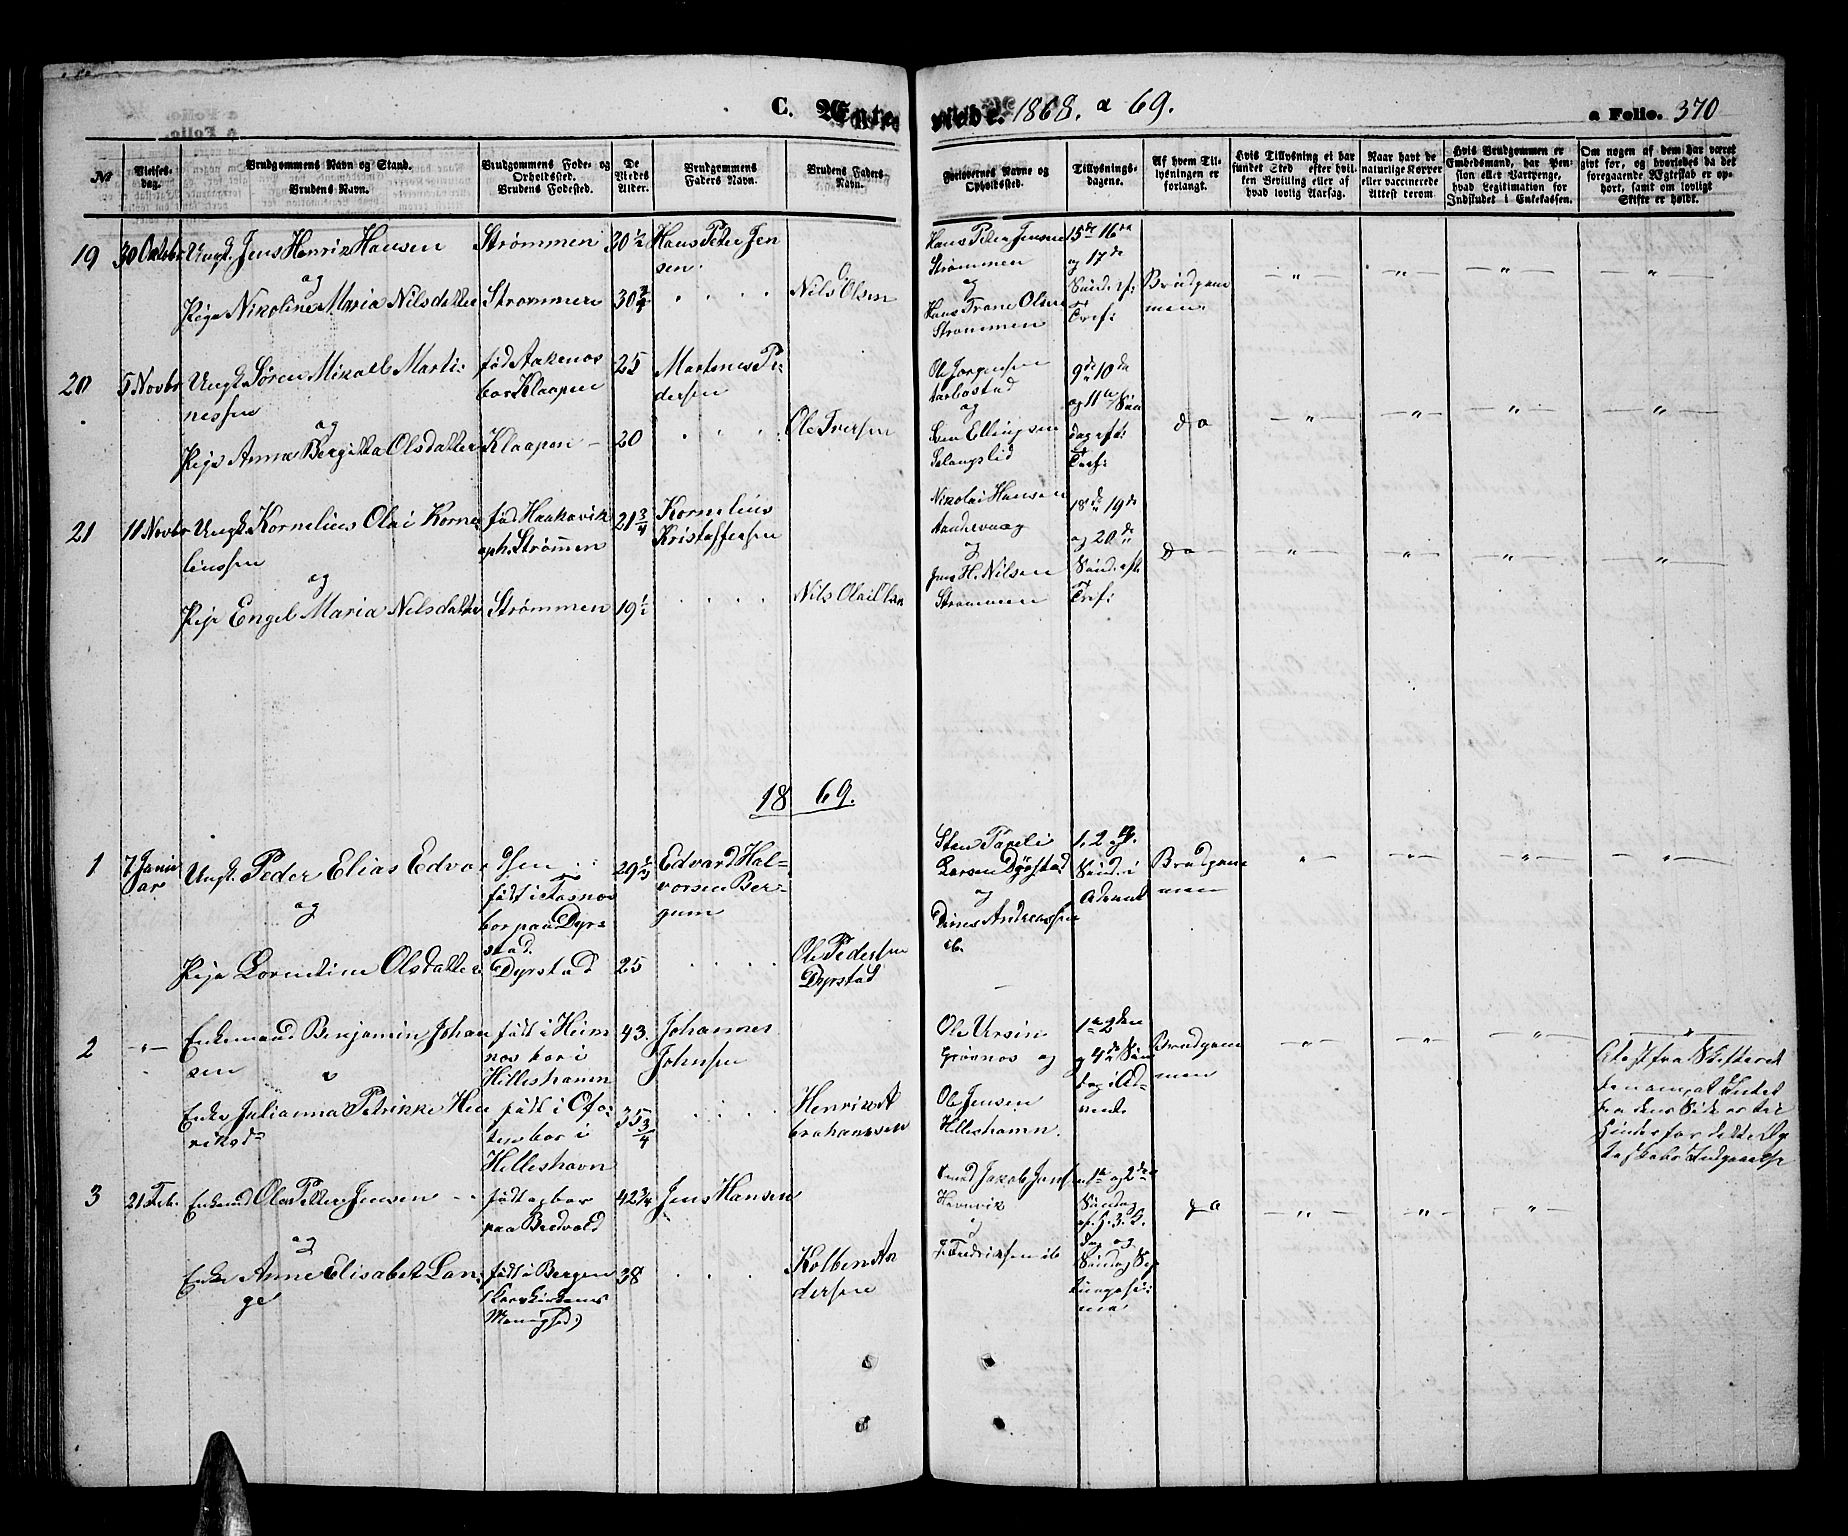 C. Ægteviede. 1868. a 69.
a Folio. 370
No
Vielses-
dag.
Brudgommens Navn og Stand.
Brudens Navn.
Brudgommens Føde- og
Opholdssted.
Brudens Fødested.
De
Viedes
Alder.
Brudgommens
Faders Navn.
Brudens Faders
Navn.
Forlovernes Navne og
Opholdssted.
Tillysnings-
dagene.
Af hvem Til-
lysningen er
forlangt.
Hvis Tillysning ei har
fundet Sted efter hvil-
ken Bevilling eller af
hvad lovlig Aarsag.
Naar havt de
naturlige Kopper
eller vaccinerede
Attest derom.
Hvis Brudgommen er
Embedsmand, har Pen-
sion eller Vartpenge,
hvad Legitimation for
Indskudet i Enkekassen.
Om nogen af dem har været
givt for, og hvorledes da det
foregaaende Ægteskab er op-
hørt, samt om lovligt
Skifte er holdt.
19 30 Octobr Ungk. Jens Henrik Hansen
og
Pige Nikoline Maria Nilsdatter
Strømmen
Strømmen
30 1/2
30 3/4
Hans Peter Jen
sen
Nils Olsen
Hans Peter Jensen
Strømmen
og
Hans Trane Olsen
Strømmen
15de 16de
og 17de
Sünd. ef:
Tref:
Brudgom
men
20 5 Novbr Ungk. Søren Mikael Marti:
nessen
og
Pige Anna Bergitta Olsdatter
fød Aakenes
bor Klaapen
Klaapen
25
20
Martines Pe-
dersen
Ole Iversen
Ole Jørgensen
og
Ellingsen
9de 10de
og 11te Sün
dag ef:
Tref:
do
21 11 Novbr Ungk. Kornelius Olai Korne
liussen
og
Pige Engel Maria Nilsdatter
fød Haakavik
oph. Strømen
Strømmen
21 3/4
19 1/2
Kornelius
Kristoffersen
Nils Olai Olsen
Nikolai Hansen
og
Jens H. Nilsen
Strømmen
18de 19de
og 20de
Sünd. eft
Tref:
do
1869.
1 7 Janu
ar
Ungk. Peder Elias Edvar
dsen
og
Pige Lorentine Olsdatter
født i Fosnes
bor paa Dyr-
stad.
Dyrstad
29 1/2
25
Edvard Hal-
vorsen Ber-
gum
Ole Pedersen
Dyrstad
Sten Paseli
Larsen Dyrstad
og
Dines Andreassen
ib.
1. 2. 3.
Sünd. i
Advent
Brudgom
men
2 Enkemand Benjamin Johan
sen
Enke Julianna Petrikke Hen
riksd
født i Heim
nes bor i
Hilleshamn
født i Ofo-
ten bor i
Hilleshavn
43
35 3/4
Johannes
Johnsen
Henrik A
brahamsen
Ole Ursin
Grøvnes og
Ole Jensen
Hilleshamn.
1te 2den
og 4de Sün
dag i Ad-
vent
Brudgom
men
Attest fra Skifteret
ten om, at Intet
fra dens Side er til
Hinder for dette Æg
teskabs Indgaaelse
3 21 Feb. Enkemd Ole Petter Jensen
og
Enke Anne Elisabet Lan-
ge
født og bor
paa Bredvold
født i Bergen
(Korskirkens
Menighed)
42 3/4
38
Jens Hansen
Kolben An
dersen
Jakob Jensen
Havnvik
og
J. Fredriksen ib
1te og 2den
Søndag
ef. H. 3. K.
Dag og
Søndag Sep
tuagesi-
ma
do